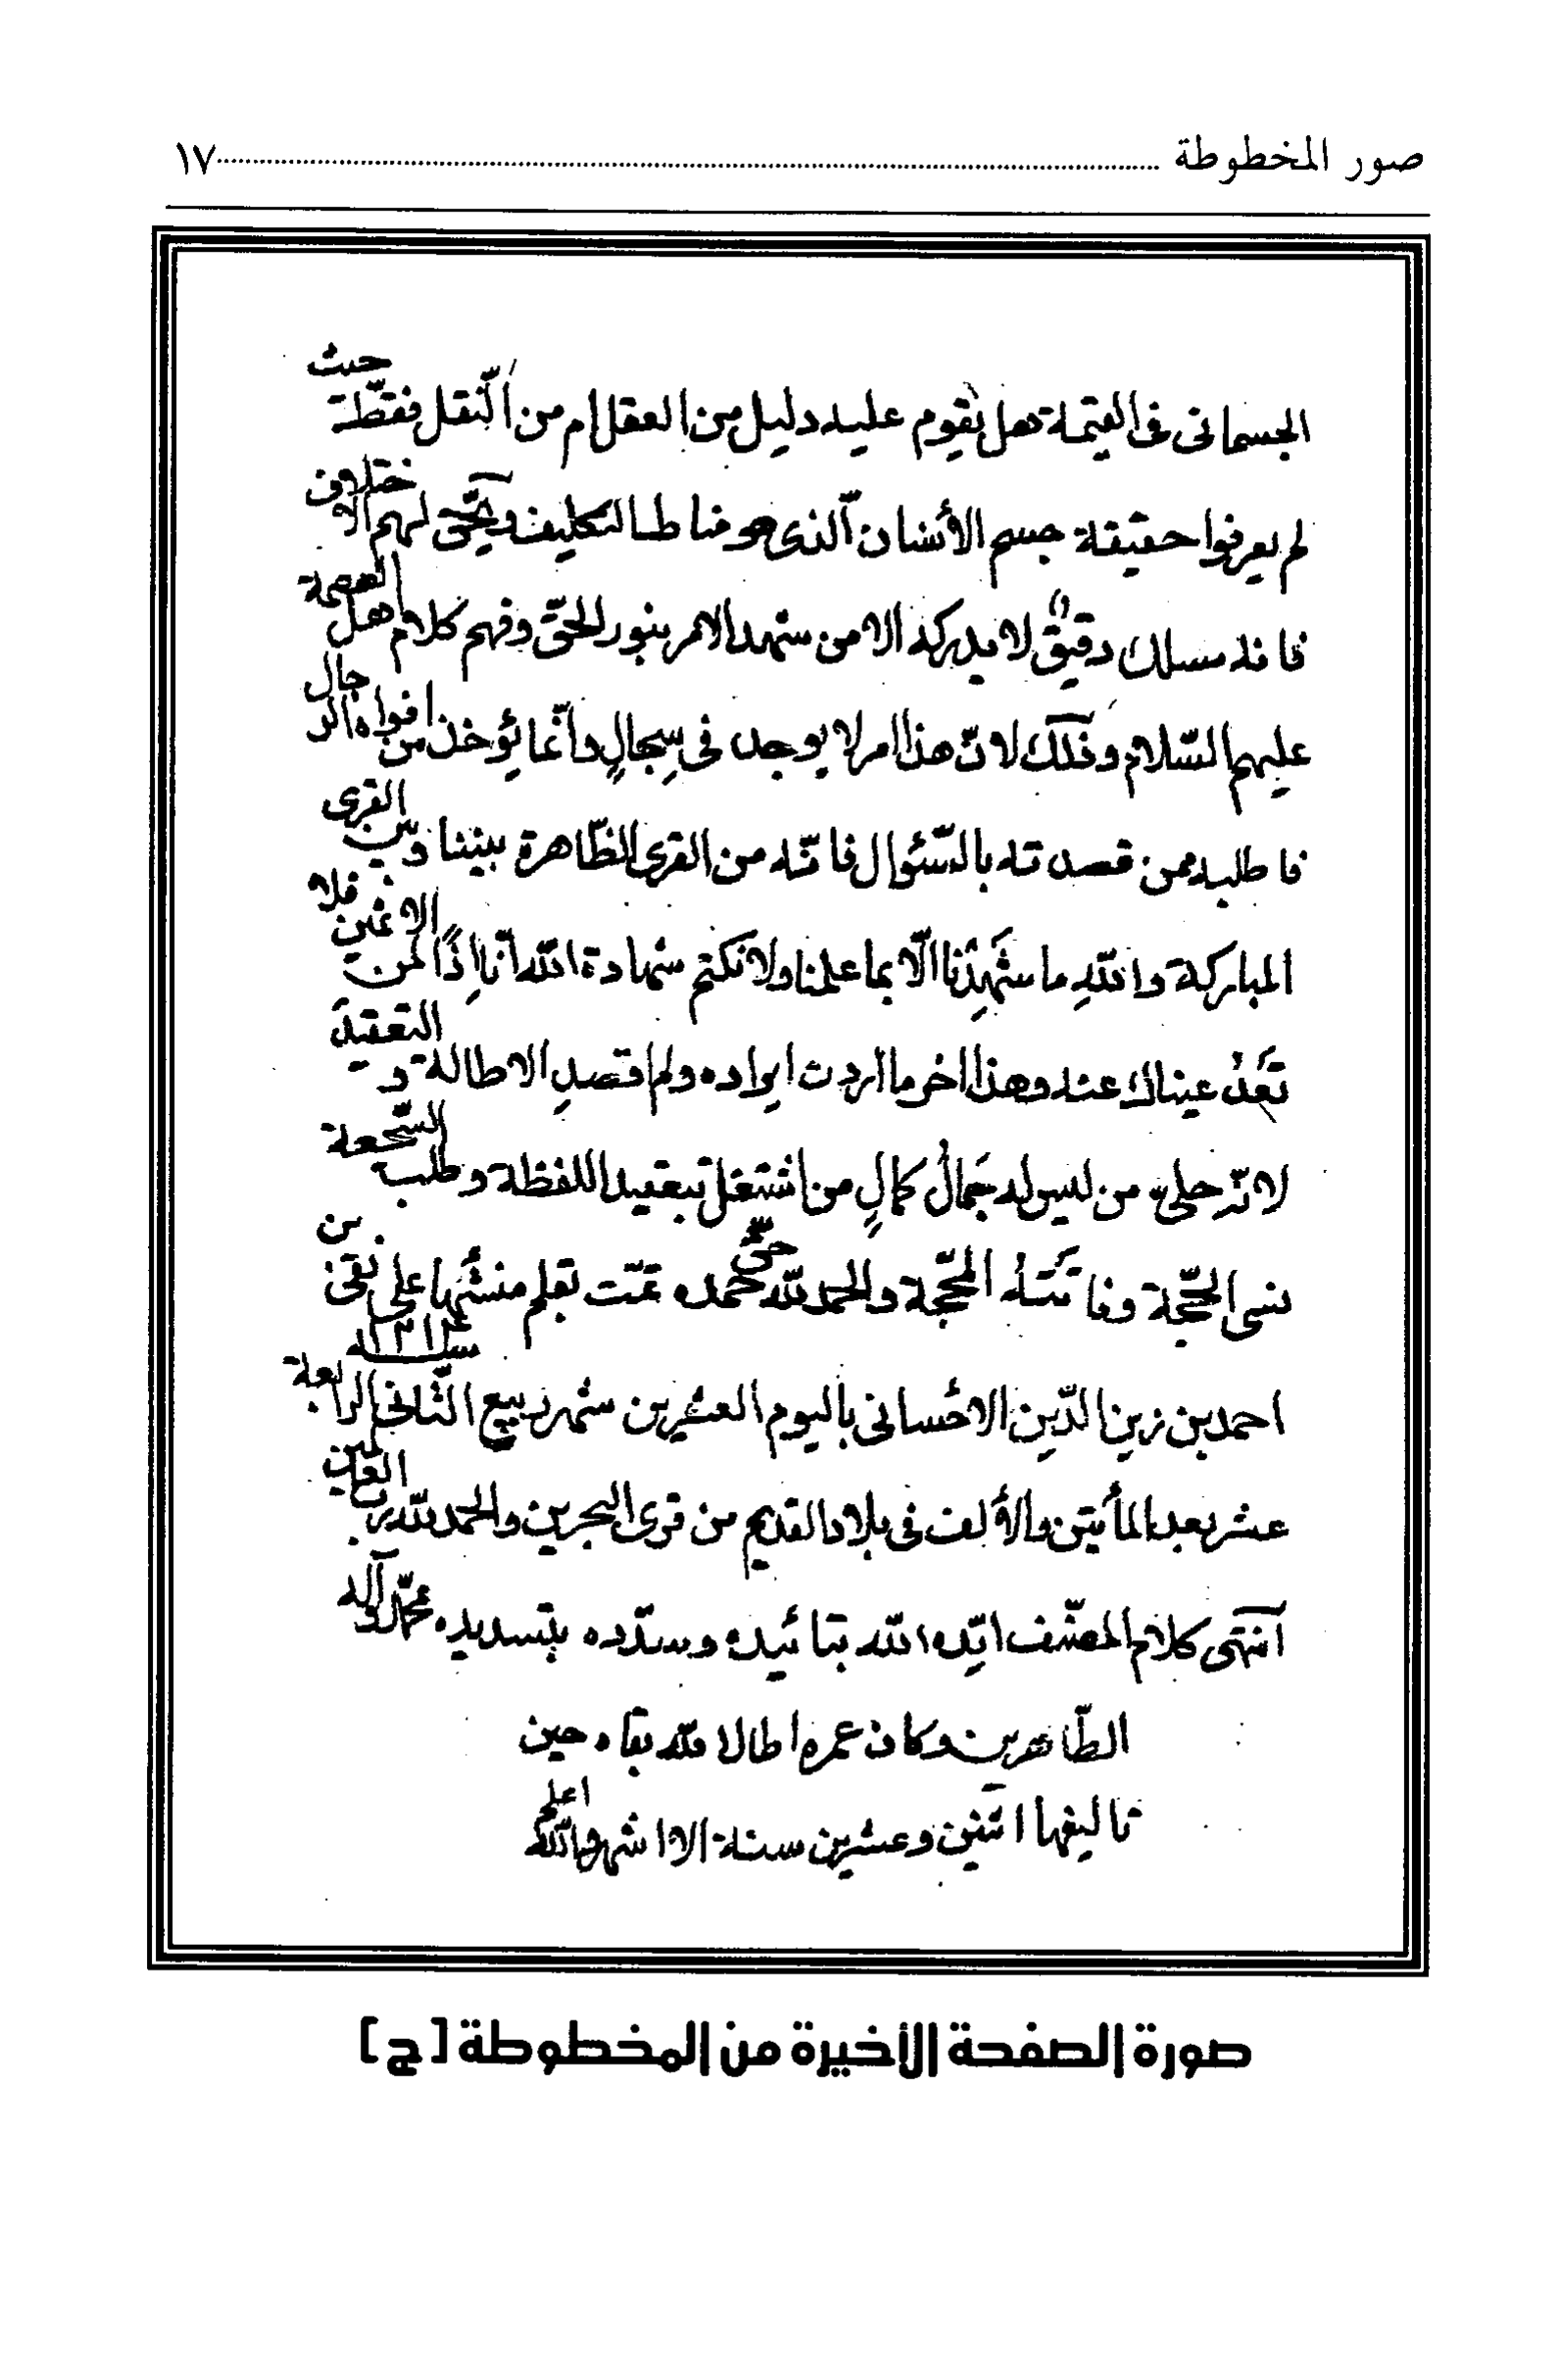 صور المخطوطة ........ ١٧
الجسمانى فى القيمة هل يقوم عليه دليل من العقل ام من النّقل فقط حيث
لم يعرفوا حقيقة جسم الأنسان الّذى هو مناط التكليف ويحقّ لهم الاختلاف
فانه مسلك دقيق لا يدركه الا من شهد الامر بنور الحقّ وفهم كلام اهل العصمة
عليهم السّلام وذلك لانّ هذا امر لا يوجد فى سِجالٍ وانّما يؤخذ من افواه الرجال
فاطلبه ممن قصدته بالسّئوال فانّه من القرى الظّاهرة بيننا وبين القرى
المباركة واللهِ ما شَهِدْنا الّا بما علمنا ولا نكتم شهادة الله انّا اِذًا لمن الاثمين فلا
تَعْدُ عيناك عنه وهذا اخر ما اردت ايراده ولم اقصدِ الاطالة و التعقيدَ
لانّه حلىّ من ليس له جَمالُ كمالٍ من اشتغل بتعقيد اللفظة وطلب السّجعة
نسى الحجّة وفاتَتْهُ المحجّة والحمد لله حقّ حمده تمّت بقلم منشئها على نقى بن
احمد بن زين الدّين الاحسائى باليوم العشرين شهر ربيع الثّانى سنة ١٢١٤ الرابعة
عشر بعد المأيتين والألف فى بلاد القديم من قرى البحرين والحمد لله ربّ العالمين
انتهى كلام المصنّف ايّده الله بتائيده وسدّده بتسديده بمحمّد وآله
الطّاهرين وكان عمره اطال الله بقاه حين
تاليفها اثنين وعشرين سنة الا اشهر والله اعلم
صورة الصفحة الأخيرة من المخطوطة [ج]